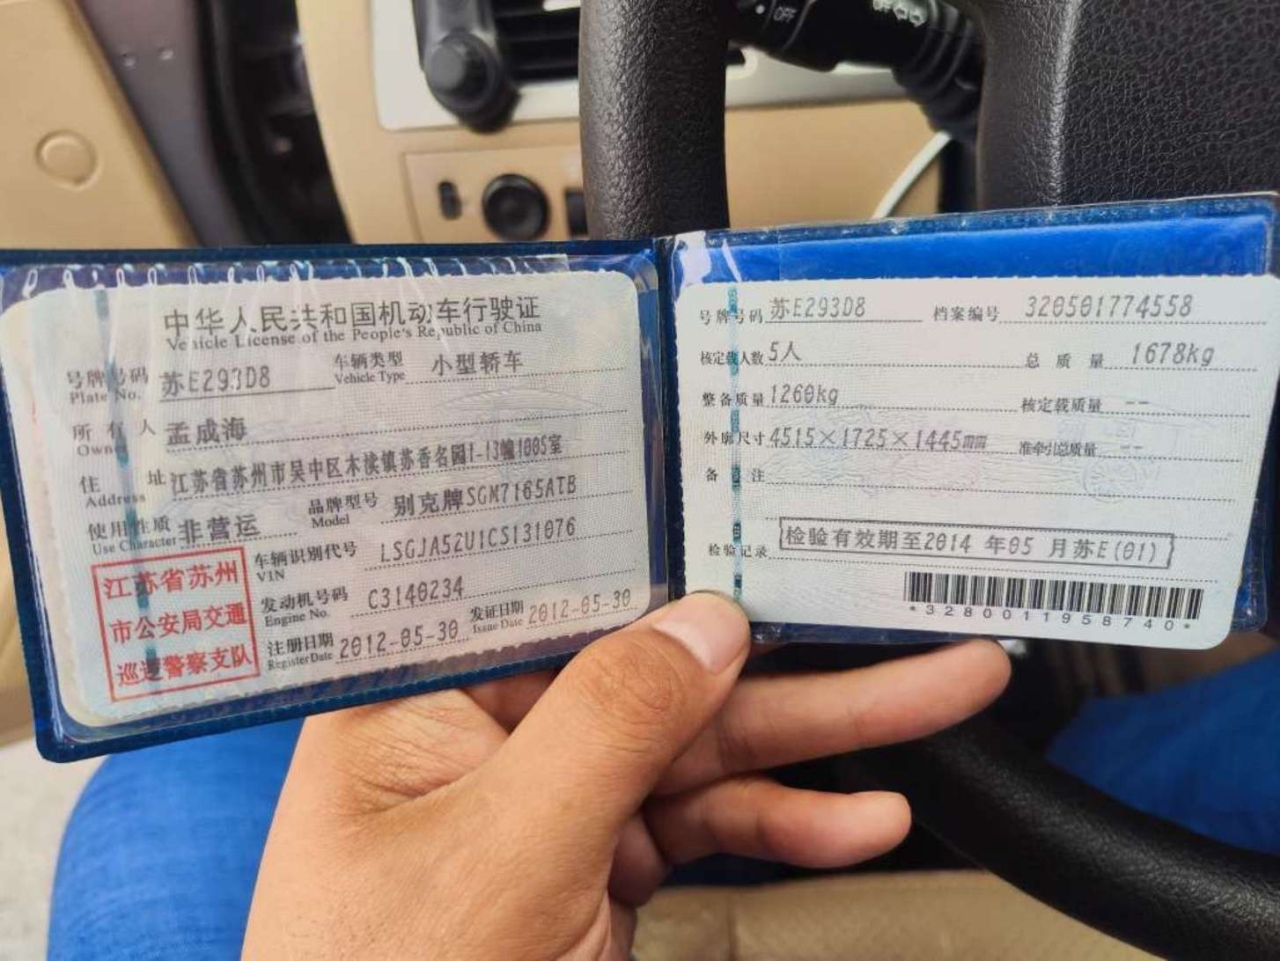 OFF
中华人民共和国机动车行驶证
Vehicle License of the People's Republic of China
号牌号码 苏E293D8 车辆类型 小型轿车
Plate No. Vehicle Type
所有人 孟成海
Owner
住址 江苏省苏州市吴中区木渎镇苏香名园1-13幢1005室
Address
使用性质 非营运 品牌型号 别克牌SGM7165ATB
Use Character Model
车辆识别代号 LSGJA52U1CS131076
VIN
发动机号码 C3140234
Engine No.
注册日期 2012-05-30 发证日期 2012-05-30
Register Date Issue Date
江苏省苏州
市公安局交通
巡逻警察支队
号牌号码 苏E293D8 档案编号 320501774558
核定载人数 5人 总质量 1678kg
整备质量 1260kg 核定载质量 --
外廓尺寸 4515×1725×1445mm 准牵引总质量 --
备注
检验记录 检验有效期至2014 年05 月苏E(01)
*3280011958740*